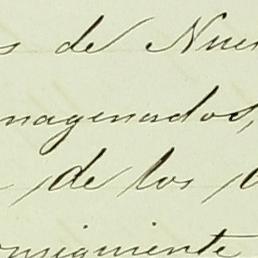 s de Nue
nagenados,
de los
onsiguiente